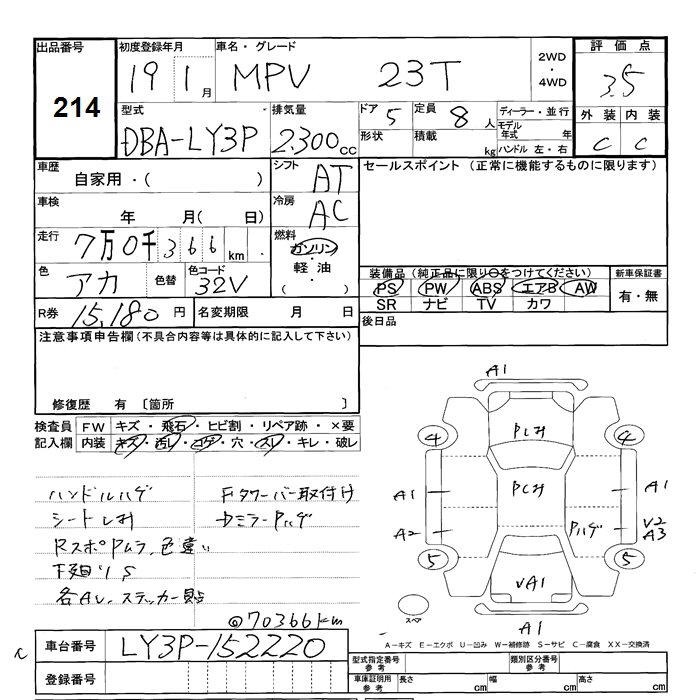 出品番号 初度登録年月 車名・グレード 2WD・4WD 評価点
214 19 1月 MPV 23T 3.5
型式 排気量 ドア 5 定員 8人 ディーラー・並行 外装 内装
DBA-LY3P 2.300cc 形状 積載 kg モデル年式 年 ハンドル 左・右 C C
車歴 自家用・( ) シフト AT セールスポイント (正常に機能するものに限ります)
車検 年 月( 日) 冷房 AC
走行 7万0千366km 燃料 ガソリン・軽油・( )
色 アカ 色替 色コード 32V
装備品 (純正品に限り○をつけてください) 新車保証書
PS PW ABS エアB AW 有・無
SR ナビ TV カワ
R券 15,180円 名変期限 月 日 後日品
注意事項申告欄 (不具合内容等は具体的に記入して下さい)
修復歴 有 〔箇所 〕
検査員記入欄 FW キズ・飛石・ヒビ割・リペア跡・×要
内装 キズ・汚レ・コゲ・穴・スレ・キレ・破レ
ハンドルハゲ Fタワーバー取付け
シートしみ DミラーPハゲ
RスポPムラ、色違い
下廻りS
各AU、ステッカー貼
◎70366km
A1
Pしみ
4 4
Pしみ
A1 A1
A2 Pハゲ V2
A3
5 5
VA1
スペア A1
A－キズ E－エクボ U－凹み W－補修跡 S－サビ C－腐食 XX－交換済
車台番号 LY3P-152220
型式指定番号 参考 類別区分番号 参考
登録番号 車庫証明用 参考 長さ cm 幅 cm 高さ cm